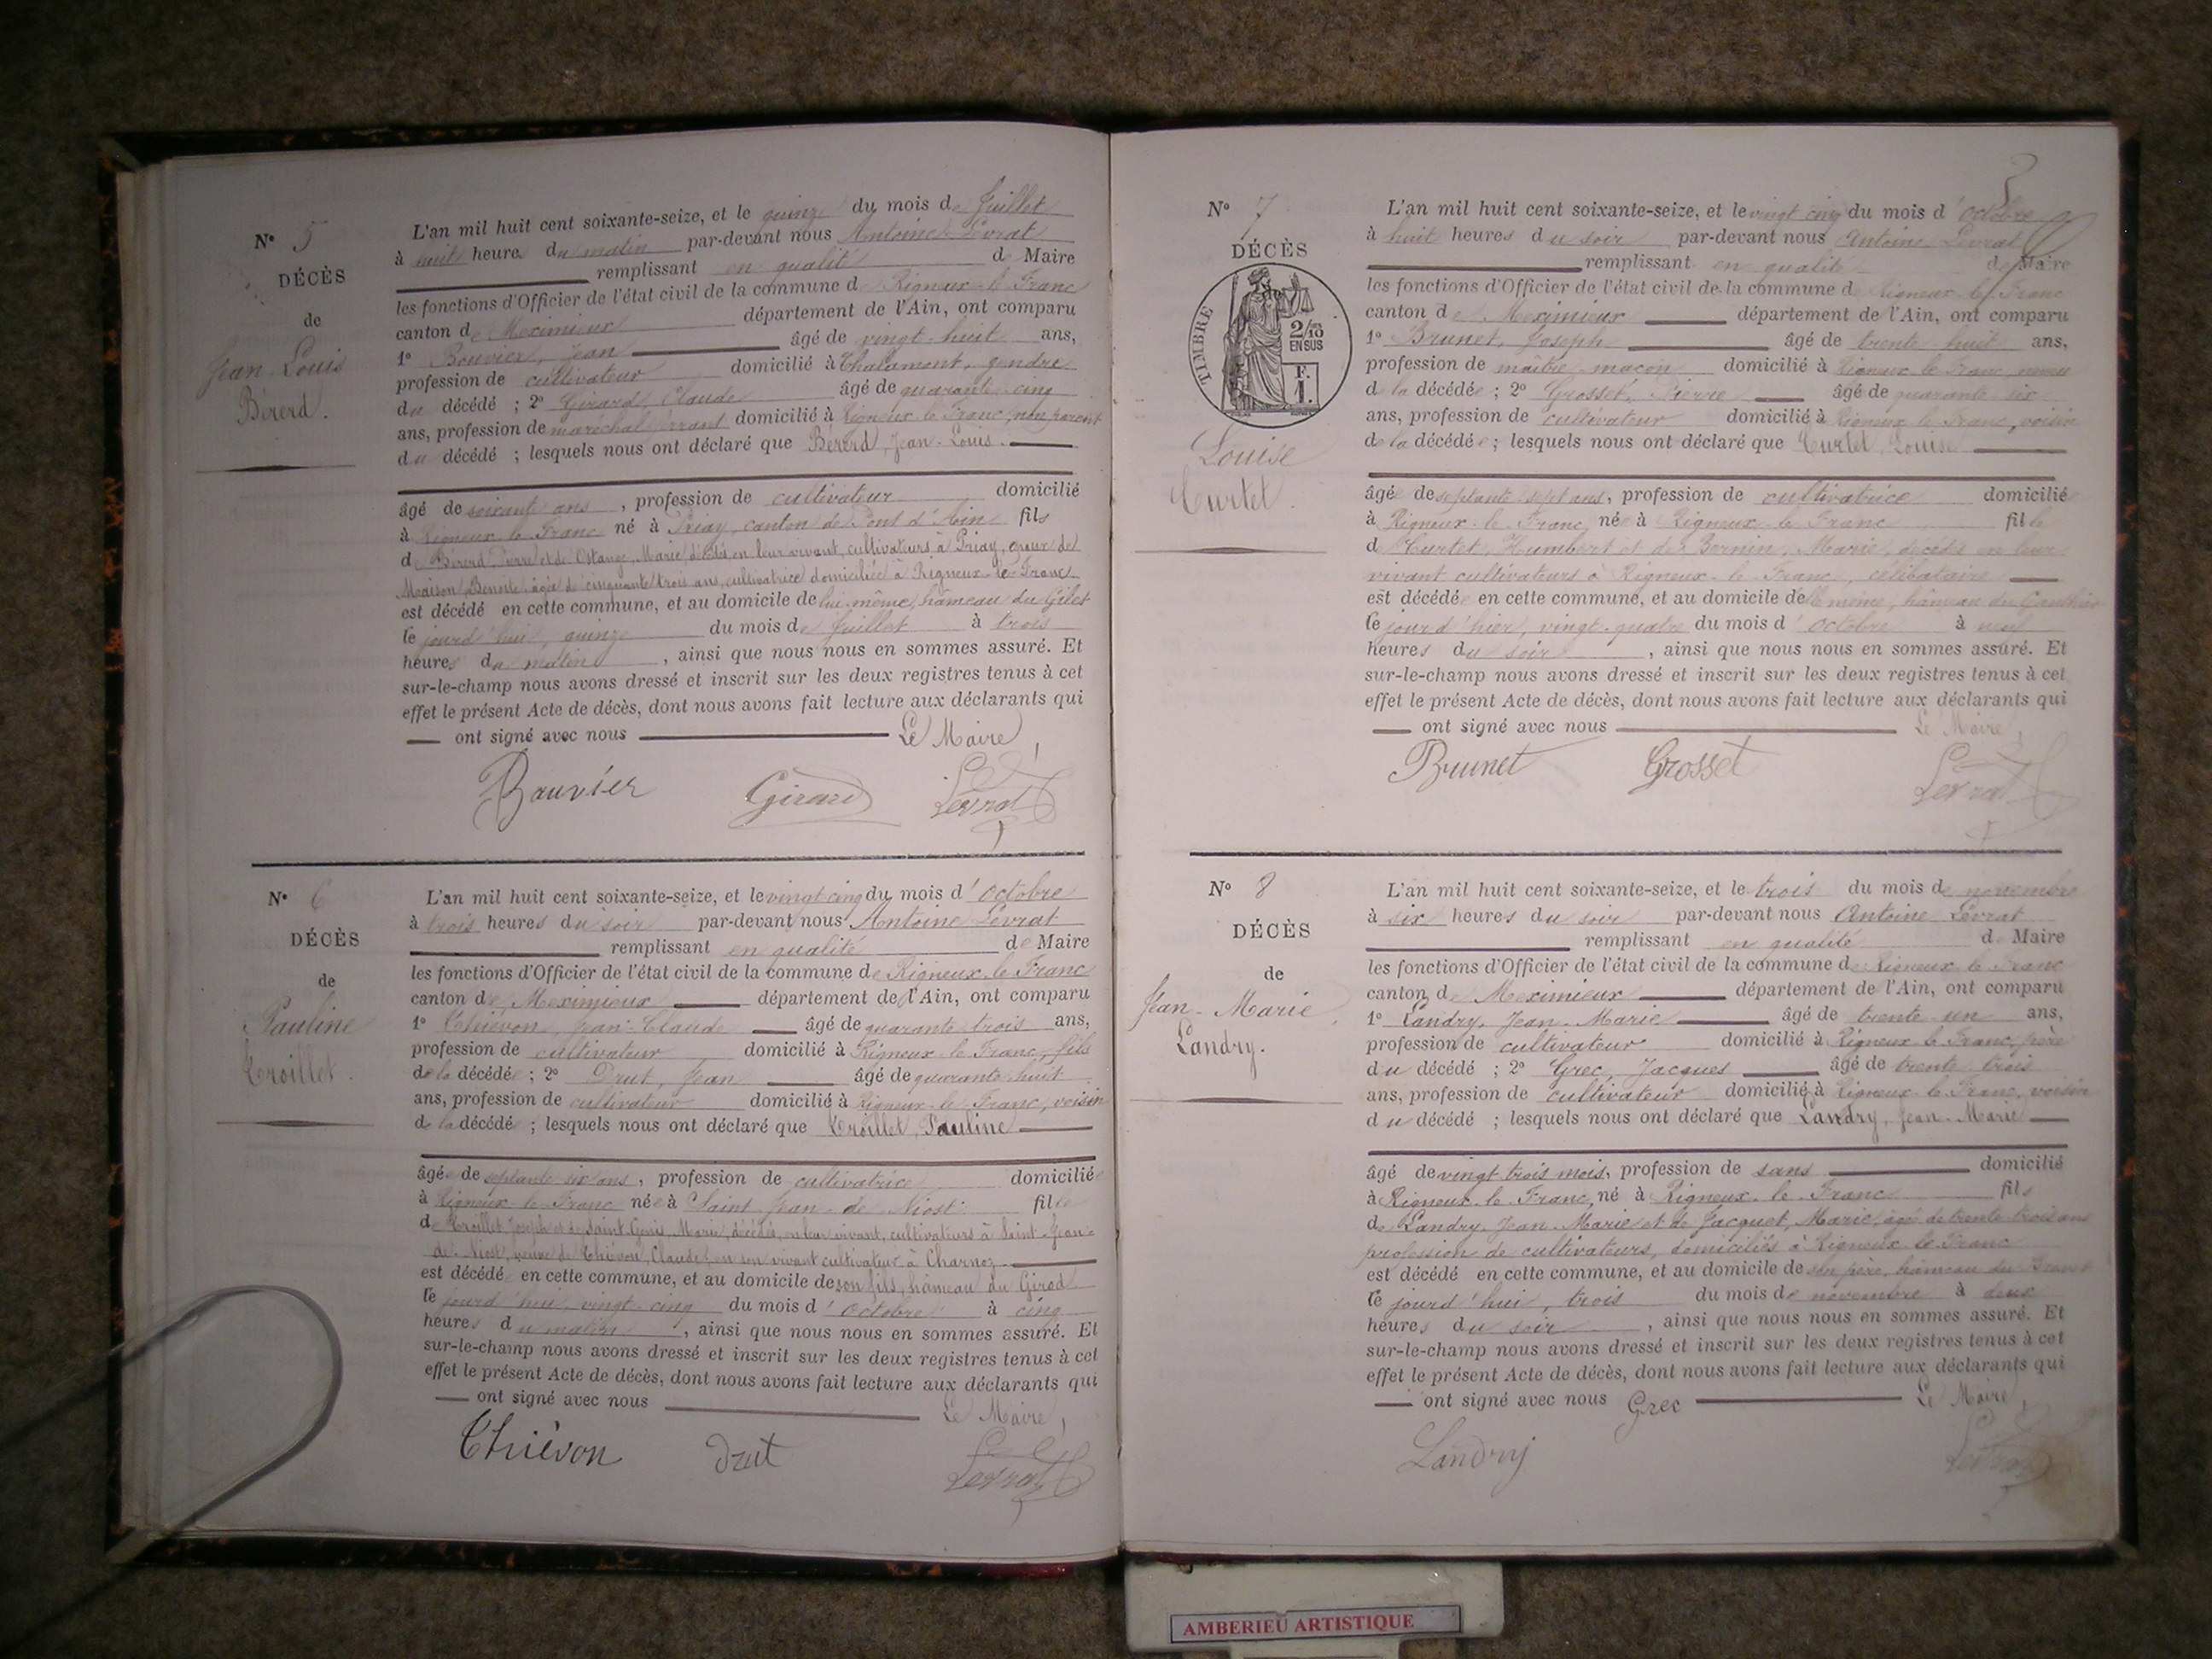 N° 5
DÉCÈS
de
Jean-Louis
Bererd.
L'an mil huit cent soixante-seize, et le quinze du mois de Juillet
à huit heures du matin par-devant nous Antoine Levrat
remplissant en qualité de Maire
les fonctions d'Officier de l'état civil de la commune de Rigneux le Franc
canton de Meximieux département de l'Ain, ont comparu
1° Bouvier, Jean âgé de vingt-huit ans,
profession de cultivateur domicilié à Chalamont, gendre
du décédé ; 2° Girard, Claude âgé de quarante-cinq
ans, profession de maréchal ferrant domicilié à Rigneux le Franc, non parent
du décédé ; lesquels nous ont déclaré que Bererd, Jean-Louis.
âgé de soixante ans, profession de cultivateur domicilié
à Rigneux le Franc né à Priay, canton de Pont d'Ain fils
de Bererd, Pierre et de Ostange, Marie, décédés en leur vivant, cultivateurs à Priay, époux de
Maison, Benoîte âgée de cinquante trois ans, cultivatrice domiciliée à Rigneux-le-Franc
est décédé en cette commune, et au domicile de lui-même, hameau du Gilet
le jourd'hui, quinze du mois de Juillet à trois
heures du matin, ainsi que nous nous en sommes assuré. Et
sur-le-champ nous avons dressé et inscrit sur les deux registres tenus à cet
effet le présent Acte de décès, dont nous avons fait lecture aux déclarants qui
ont signé avec nous Le Maire,
Bouvier Girard Levrat
N° 6
DÉCÈS
de
Pauline
Croillet.
L'an mil huit cent soixante-seize, et le vingt cinq du mois d'Octobre
à trois heures du soir par-devant nous Antoine Levrat
remplissant en qualité de Maire
les fonctions d'Officier de l'état civil de la commune de Rigneux le Franc
canton de Meximieux département de l'Ain, ont comparu
1° Thiévon, Jean-Claude âgé de quarante-trois ans,
profession de cultivateur domicilié à Rigneux le Franc, fils
de la décédée ; 2° Drut, Jean âgé de quarante-huit
ans, profession de cultivateur domicilié à Rigneux-le-Franc, voisin
de la décédé ; lesquels nous ont déclaré que Croillet, Pauline
âgée de septante six ans, profession de cultivatrice domiciliée
à Rigneux le Franc née à Saint Jean-de-Niost fille
de Croillet Joseph et de Saint-Genis Marie, décédés, en leur vivant, cultivateurs à Saint-Jean-
de-Niost, veuve de Thiévon, Claude, en son vivant cultivateur à Charnoz
est décédée en cette commune, et au domicile de son fils, hameau du Girod
le jourd'hui, vingt-cinq du mois d'Octobre à cinq
heures du matin, ainsi que nous nous en sommes assuré. Et
sur-le-champ nous avons dressé et inscrit sur les deux registres tenus à cet
effet le présent Acte de décès, dont nous avons fait lecture aux déclarants qui
ont signé avec nous Le Maire,
Thiévon Drut Levrat
N° 7
DÉCÈS
TIMBRE
2/10 EN SUS
F. 1.
Louise
Curtet.
L'an mil huit cent soixante-seize, et le vingt cinq du mois d'Octobre
à huit heures du soir par-devant nous Antoine Levrat
remplissant en qualité de Maire
les fonctions d'Officier de l'état civil de la commune de Rigneux le Franc
canton de Meximieux département de l'Ain, ont comparu
1° Brunet, Joseph âgé de trente huit ans,
profession de maître maçon domicilié à Rigneux le Franc neveu
de la décédée ; 2° Grosset, Pierre âgé de quarante six
ans, profession de cultivateur domicilié à Rigneux le Franc, voisin
de la décédée ; lesquels nous ont déclaré que Curtet, Louise
âgée de septante sept ans, profession de cultivatrice domicilié
à Rigneux-le-Franc, née à Rigneux-le-Franc fille
de Curtet, Humbert et de Bernin, Marie, décédés en leur
vivant cultivateurs à Rigneux-le-Franc, célibataire
est décédée en cette commune, et au domicile de même, hameau du
le jourd'hier, vingt-quatre du mois d'Octobre à
heures du soir, ainsi que nous nous en sommes assuré. Et
sur-le-champ nous avons dressé et inscrit sur les deux registres tenus à cet
effet le présent Acte de décès, dont nous avons fait lecture aux déclarants qui
ont signé avec nous Le Maire,
Brunet Grosset Levrat
N° 8
DÉCÈS
de
Jean-Marie
Landry.
L'an mil huit cent soixante-seize, et le trois du mois de novembre
à six heures du soir par-devant nous Antoine Levrat
remplissant en qualité de Maire
les fonctions d'Officier de l'état civil de la commune de Rigneux le Franc
canton de Meximieux département de l'Ain, ont comparu
1° Landry, Jean-Marie âgé de trente-un ans,
profession de cultivateur domicilié à Rigneux le Franc, père
du décédé ; 2° Grec, Jacques âgé de trente-trois
ans, profession de cultivateur domicilié à Rigneux le Franc, voisin
du décédé ; lesquels nous ont déclaré que Landry, Jean-Marie
âgé de vingt trois mois, profession de sans domicilié
à Rigneux-le-Franc, né à Rigneux-le-Franc fils
de Landry, Jean-Marie et de Jacquet, Marie âgé de trente-trois ans
profession de cultivateurs, domiciliés à Rigneux le Franc
est décédé en cette commune, et au domicile de son père, hameau du
le jourd'hui, trois du mois de novembre à deux
heures du soir, ainsi que nous nous en sommes assuré. Et
sur-le-champ nous avons dressé et inscrit sur les deux registres tenus à cet
effet le présent Acte de décès, dont nous avons fait lecture aux déclarants qui
ont signé avec nous Grec Le Maire,
Landry Levrat
AMBERIEU ARTISTIQUE